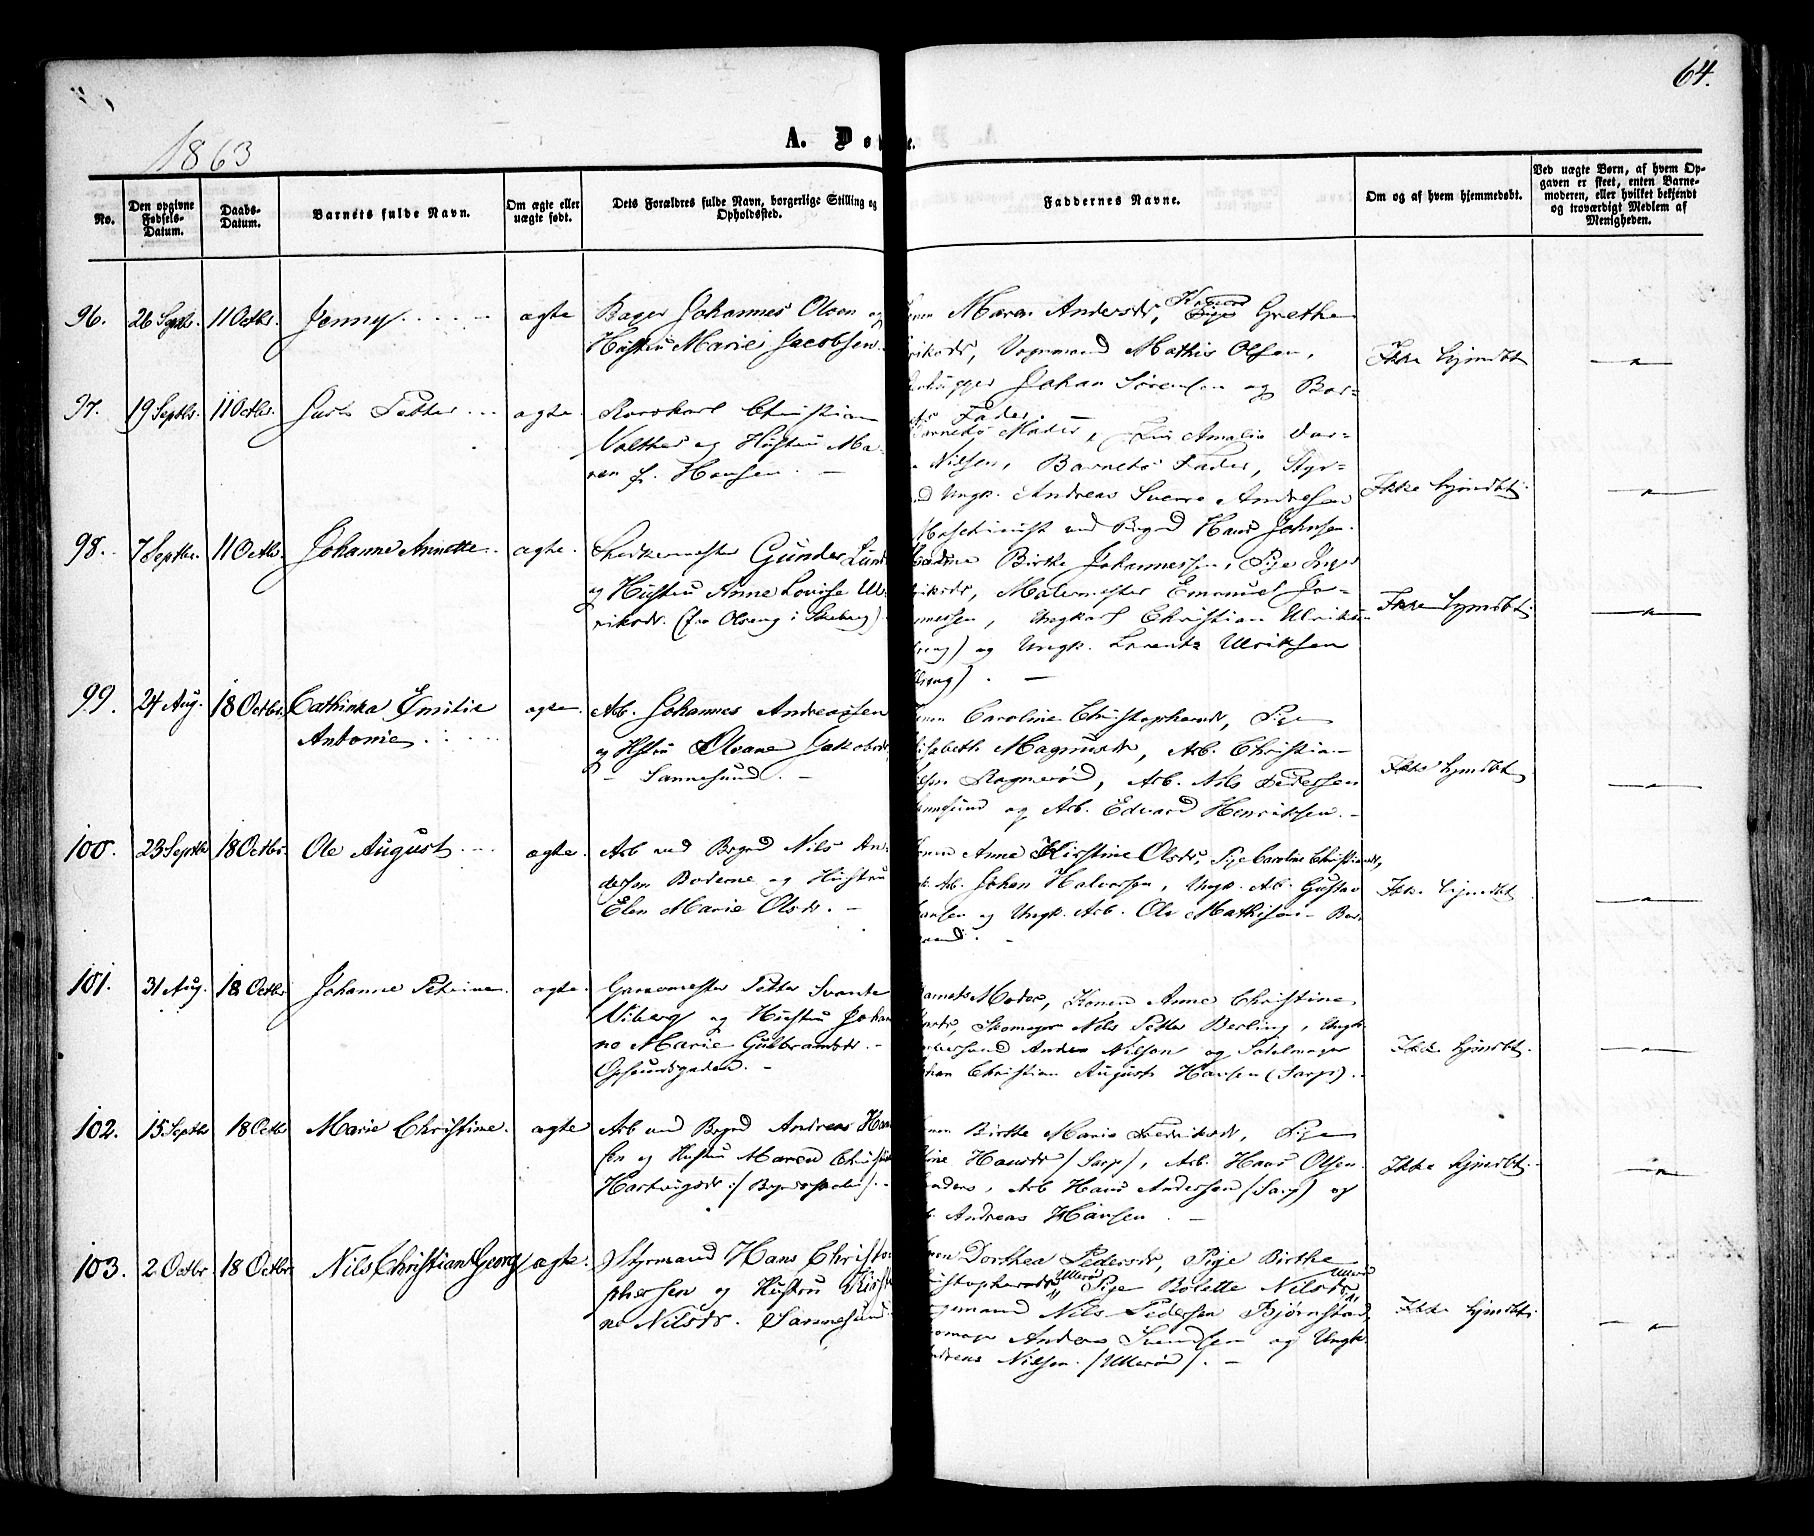 64.
1863
A. Dø e.
No.
Den opgivne Fødsels-Datum.
Daabs-Datum.
Barnets fulde Navn.
Om ægte eller uægte født.
Dets Forældres fulde Navn, borgerlige Stilling og Opholdssted.
Faddernes Navne.
Om og af hvem hjemmedøbt.
Ved uægte Børn, af hvem Opgaven er skeet, enten Barnemoderen, eller hvilket bekjendt og troværdigt Medlem af Menigheden.
96. 26 Septbr. 11 Octbr. Jenny ægte
Bager Johannes Olsen og
Hustru Marie Jacobsen
Maren Andersdr, Grethe
Vognmand Mathis Olsen,
Johan Sørensen og Bar-
Fader. —
Ikke hjmdbt
— " —
97. 19 Septbr. 11 Octbr. Petter ægte.
Christian
Valther og Hustru Ma-
ren f. Hansen. —
Moder,
Nilsen, Barnets Fader, Styr-
Ungk. Andreas Andresen
Ikke hjmdbt.
— " —
98. 7 Septbr. 11 Octbr. Johanne Annette ægte.
Gunder Lund
og Hustru Anne Lovise Ul-
riksdr. (fra Olseng i Skeberg)
Maschinist ved Brgrd Hans Johnsen.
Birthe Johannessen, Pige
Malermester Emanuel Jo-
Ungkarl Christian Ulriks
og Ungk. Lorentz Ulriksen
Ikke hjmdbt.
— " —
99. 24 Aug. 18 Octbr. Cathinka Emilie
Antonie ægte
Arb. Johannes Andreassen
og Hstru Olvane Jakobsdr,
— Sannesund. —
Caroline Christophersdr, Pige
Magnusdr, Arb. Christian
Ragnerød, Arb. Nils Pedersen
og Arb. Edvard Henriksen. —
Ikke hjmdbt
— " —
100. 23 Septbr 18 Octbr. Ole August ægte.
Arb ved Brgrd Nils An-
dersen Boderne og Hustru
Elen Marie Olsdr. —
Anne Kirstine Olsdr, Pige Caroline Christiansdr,
Arb. Johan Halvorsen, Ungk. Arb. Gustav
og Ungk. Arb. Ole Mathisen
Ikke hjmdbt
— " —
101. 31 Aug. 18 Octbr Johanne Petrine. ægte.
Garvermester Petter Svante
Viberg og Hustru Johan
ne Marie Gulbrandsdr. —
Opsundsgaden. —
Barnets Moder, Konen Anne Christine
Skomager Nils Petter Berling, Ungk
Anders Nilsen og Sadelmager
Christian August Hansen (Sarp). —
Ikke hjmdbt.
— " —
102. 15 Septbr 18 Octbr Marie Christine. ægte
Arb ved Brgrd Andreas Han
sen og Hustru Maren Christine
Hartvigsdr.
Birthe Marie Fredriksdr, Pige
Hansdr (Sarp), Arb. Hans Olsen
Arb Hans Andersen (Sarp) og
Andreas Hansen. —
Ikke hjmdbt. —
— " —
103. 2 Octbr. 18 Octbr. Nils Christian Georg ægte.
Styrmand Hans Christo-
phersen og Hustru Kirsti
ne Nilsdr. Sannesund
Dorthea Pedersdr, Pige Birthe
Ullerød Pige Bolette Nilsdr Ullerød
Nils Pedersen Bjørnstad,
Anders Svendsen og Ungk
Nilsen. (Ullerød). —
Ikke hjmdbt.
— " —